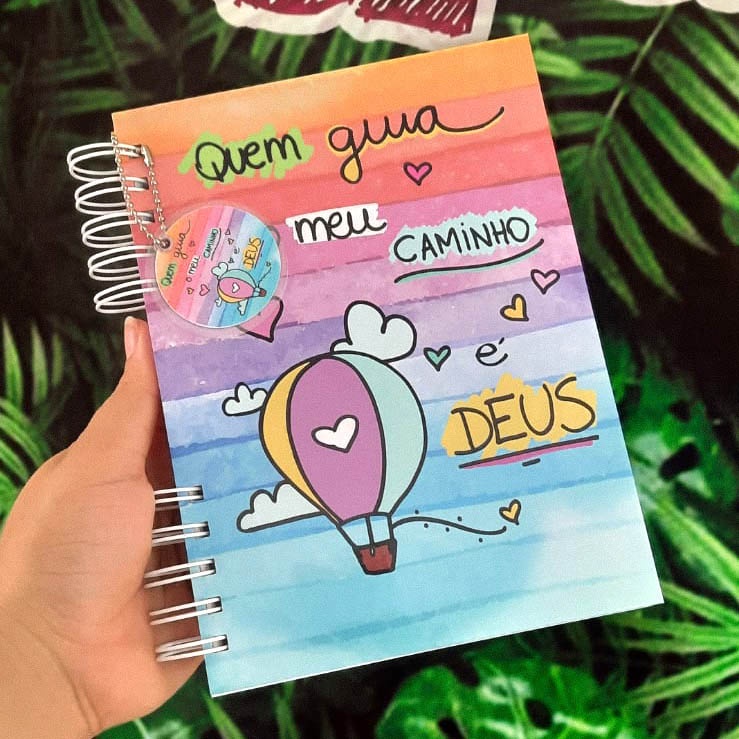 Quem guia
meu
CAMINHO
é
DEUS
Quem guia
o meu CAMINHO
é DEUS